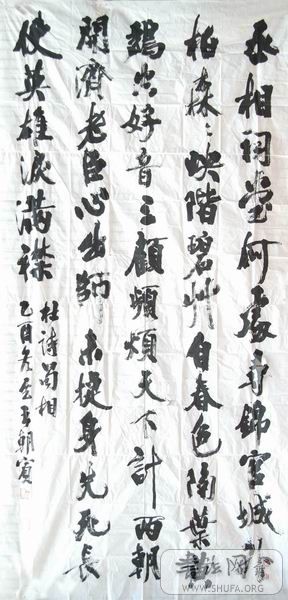 丞相祠堂何處尋錦官城外
柏森々映階碧艸自春色隔葉黃
鸝空好音三顧頻煩天下計兩朝
開濟老臣心出師未捷身先死長
使英雄淚滿襟
杜詩蜀相
乙酉冬至王朝賓
書法网
WWW.SHUFA.ORG